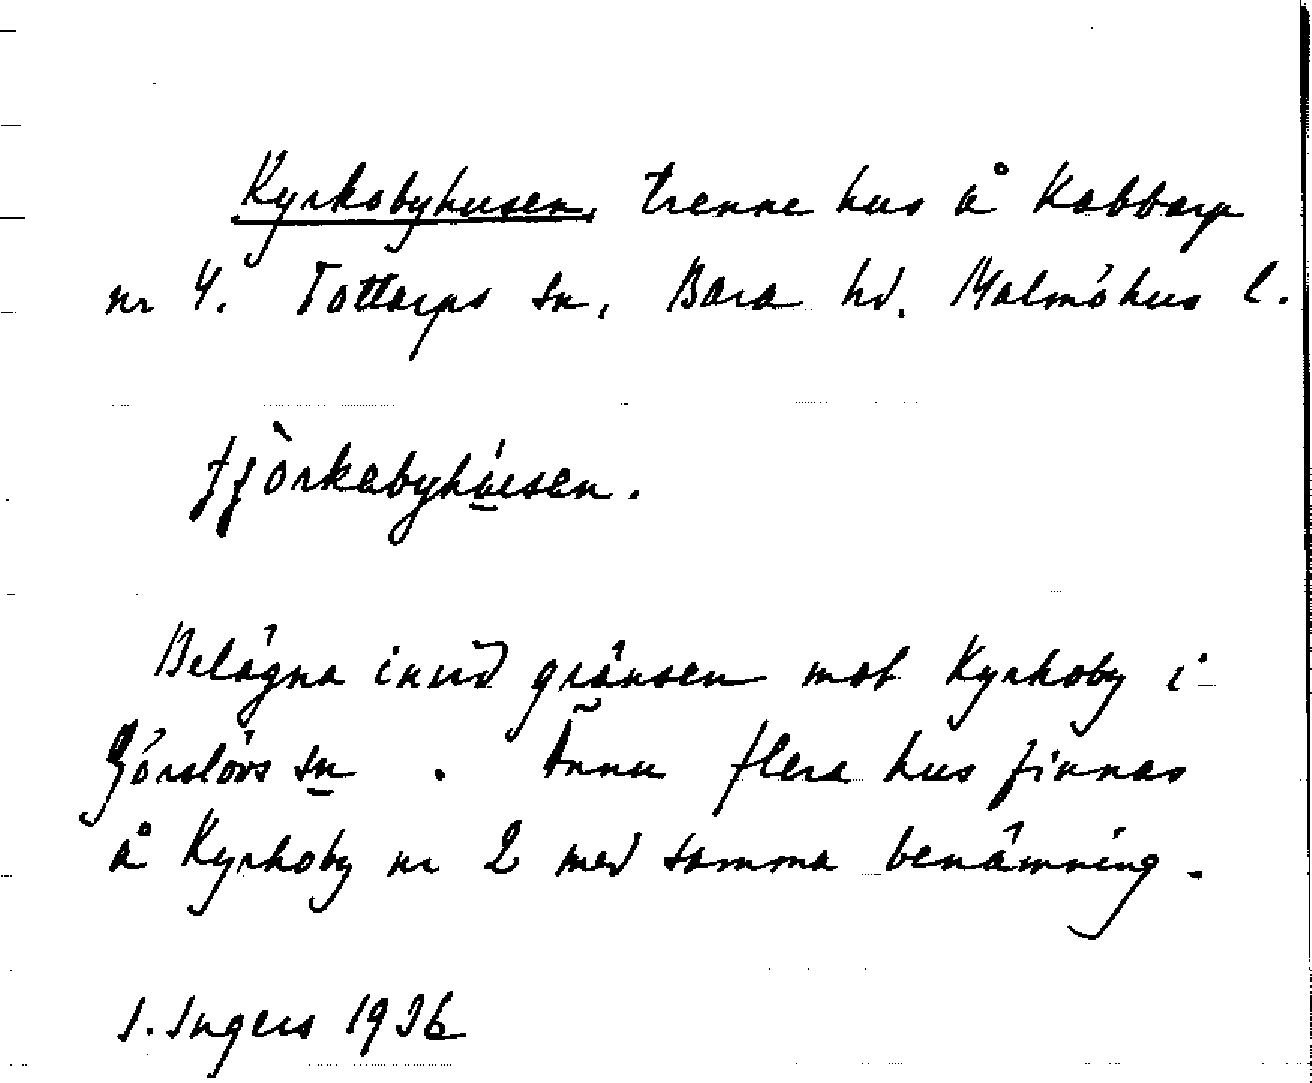 Kyrkobyhusen, trenne hus å Kabbarp
nr 4. Tottarps sn, Bara hd. Malmöhus l.
tjòrkebyhúsen.
Belägna invid gränsen mot Kyrkoby i
Görslövs sn. Ännu flera hus finnas
å Kyrkoby nr 2 med samma benämning.
I. Ingers 1936